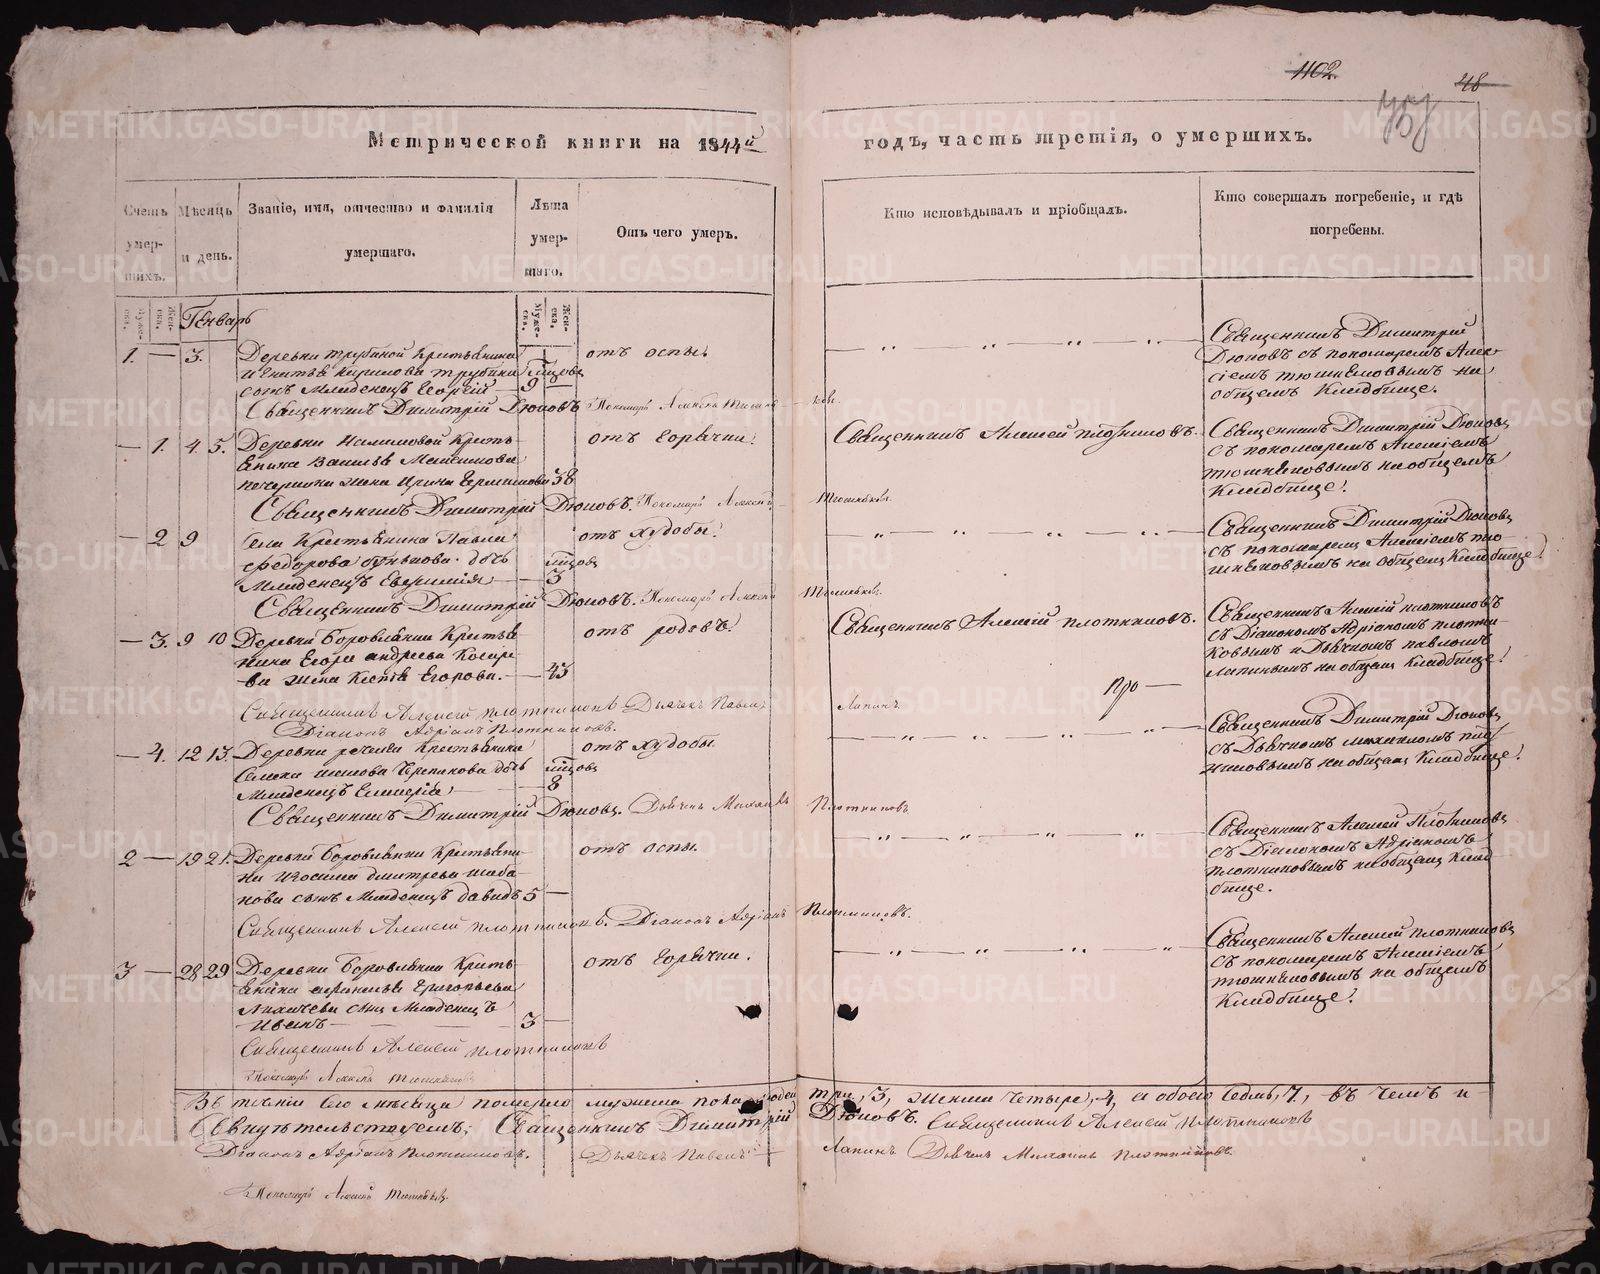 1102.
48
Метрической книги на 1844й годъ, часть третія, о умершихъ.
Счетъ умер-шихъ.
Мѣсяцъ и день.
Званіе, имя, отчество и фамилія умершаго.
Лѣта умер-шаго.
Отъ чего умеръ.
Кто исповѣдывалъ и пріобщалъ.
Кто совершалъ погребеніе, и гдѣ погребены.
Муже-ска.
Жен-ска.
Муже-ска.
Жен-ска.
Генварь
1. — 3.
Деревни Трубиной Крестьянина
Игнатья Кирилова Трубина
сынъ Младенецъ Георгій
9 —
отъ оспы.
Священникъ Димитрій
Дюковъ съ пономаремъ Алек-
сіемъ Тюшняковымъ на
общемъ Кладбище.
Священникъ Димитрій Дюковъ Пономарь Алексѣй
— 1. 4 5.
Деревни
Крестья-
янина Василья Максимова
жена Ирина
38
отъ горячки.
Священникъ Алексѣй Плотниковъ.
Священникъ Димитрій Дюковъ
съ пономаремъ Алексіемъ
Тюшняковымъ на общемъ
Кладбище.
Священникъ Димитрій Дюковъ. Пономарь Алексѣй
— 2 9
Села Крестьянина Павла
Федорова
дочь
Младенецъ Евфимія —
3
отъ худобы.
Священникъ Димитрій Дюковъ
съ пономаремъ Алексіемъ Тю-
шняковымъ на общемъ Кладбище.
Священникъ Димитрій Дюковъ. Пономарь Алексѣй
— 3. 9 10
Деревни Боровлянки Крестья-
нина Егора Андреева
жена
Егорова. —
43
отъ родовъ.
Священникъ Алексій Плотниковъ.
Священникъ Алексій Плотниковъ
съ Діакономъ Адріаномъ Плотни-
ковымъ и Дьячкомъ Павломъ
Лапинымъ на общемъ Кладбище.
Священникъ Алексѣй Плотниковъ Дьячекъ Павелъ Лапинъ
Діаконъ Адріанъ Плотниковъ.
— 4. 12 13.
Деревни
Крестьянина
дочь
Младенецъ
8
отъ худобы
Священникъ Димитрій Дюковъ
съ Дьячкомъ Михаиломъ Плот-
никовымъ на общемъ Кладбище.
Священникъ Димитрій Дюковъ. Дьячекъ Михаилъ Плотниковъ
2 — 19 21.
Деревни Боровлянки Крестьяни-
на
Дмитрева Шаба-
нова сынъ Младенецъ Давидъ 5 —
отъ оспы.
Священникъ Алексѣй Плотниковъ
съ Діакономъ Адріаномъ
Плотниковымъ на общемъ Клад-
бище.
Священникъ Алексѣй Плотниковъ. Діаконъ Адріанъ Плотниковъ.
3 — 28 29
Деревни Боровлянки Кресть-
янина
Григорьева
Лихачева сынъ Младенецъ
Иванъ —
3 —
отъ горячки.
Священникъ Алексѣй Плотниковъ
съ пономаремъ Алексіемъ
Тюшняковымъ на общемъ
Кладбище.
Священникъ Алексѣй Плотниковъ
Пономарь Алексѣй Тюшняковъ
Въ теченіи сего мѣсяца померло мужеска пола людей три, 3, женска четыре, 4, а обоего семь, 7, въ чемъ и
Свидѣтельствуемъ, Священникъ Димитрій Дюковъ. Священникъ Алексѣй Плотниковъ
Діаконъ Адріанъ Плотниковъ. Дьячекъ Павелъ Лапинъ Дьячекъ Михаилъ Плотниковъ.
Пономарь Алексѣй Тюшняковъ.
METRIKI.GASO-URAL.RU